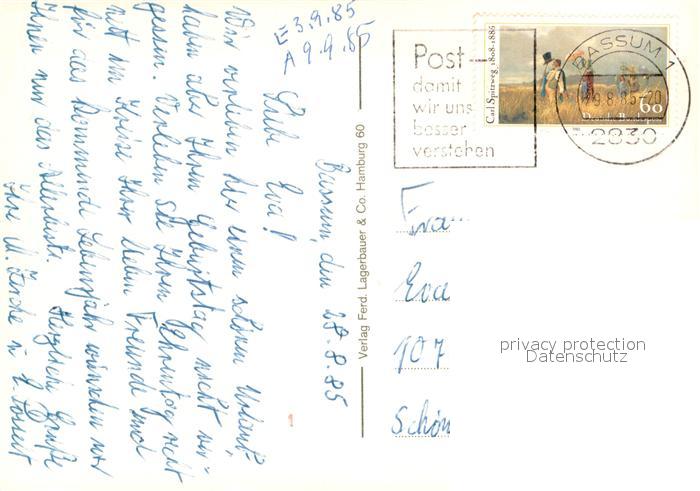 E 3.9.85
A 9.9.85
Bassum, den 28.8.85
Liebe Eva!
Wir verleben hier einen schönen Urlaub,
haben aber Ihren Geburtstag nicht ver-
gessen. Verleben Sie Ihren Ehrentag recht
nett im Kreise Ihrer lieben Freunde und
für das kommende Lebensjahr wünschen wir
Ihnen nur das Allerbeste. Herzliche Grüße
Ihre M. u. H.
Verlag Ferd. Lagerbauer & Co. Hamburg 60
Post-
damit
wir uns
besser
verstehen
Carl Spitzweg, 1808-1885
60
Deutsche Bundespost
BASSUM 1
29.8.85-20
2830
Frau
Eva
107
Schön
privacy protection
Datenschutz